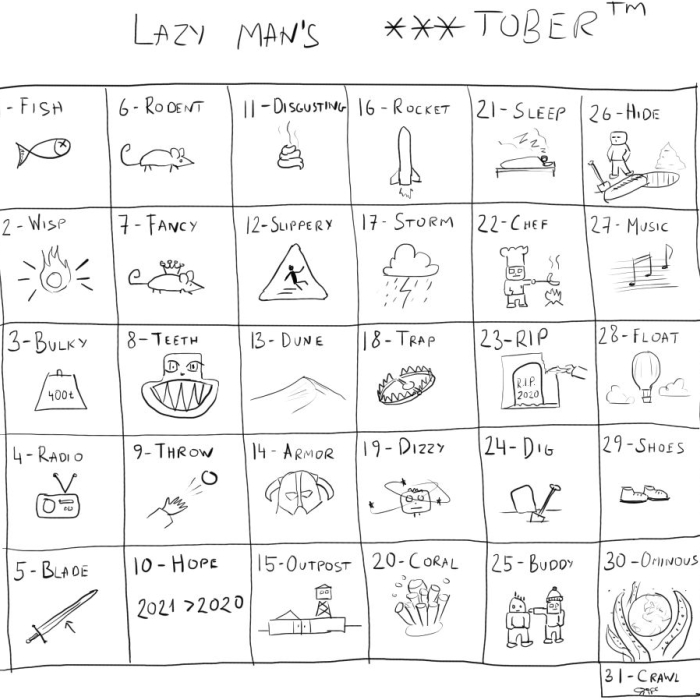 LAZY MAN'S ***TOBER™
- FISH
6 - RODENT
11 - DISGUSTING
16 - ROCKET
21 - SLEEP
26 - HIDE
2 - WISP
7 - FANCY
12 - SLIPPERY
17 - STORM
22 - CHEF
27 - MUSIC
3 - BULKY
400t
8 - TEETH
13 - DUNE
18 - TRAP
23 - RIP
R.I.P.
2020
28 - FLOAT
4 - RADIO
9 - THROW
14 - ARMOR
19 - DIZZY
24 - DIG
29 - SHOES
5 - BLADE
10 - HOPE
2021 > 2020
15 - OUTPOST
20 - CORAL
25 - BUDDY
30 - OMINOUS
31 - CRAWL